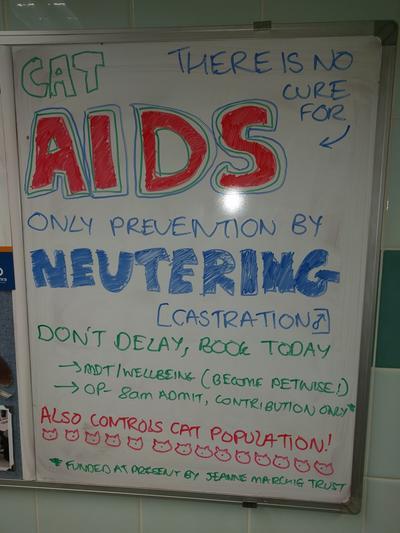 CAT
THERE IS NO
CURE
FOR
AIDS
ONLY PREVENTION BY
NEUTERING
[CASTRATION♂]
DON'T DELAY, BOOK TODAY
→ MDT/WELLBEING (BECOME PETWISE!)
→ OP- 8am ADMIT, CONTRIBUTION ONLY*
ALSO CONTROLS CAT POPULATION!
*FUNDED AT PRESENT BY JEANNE MARCHIG TRUST